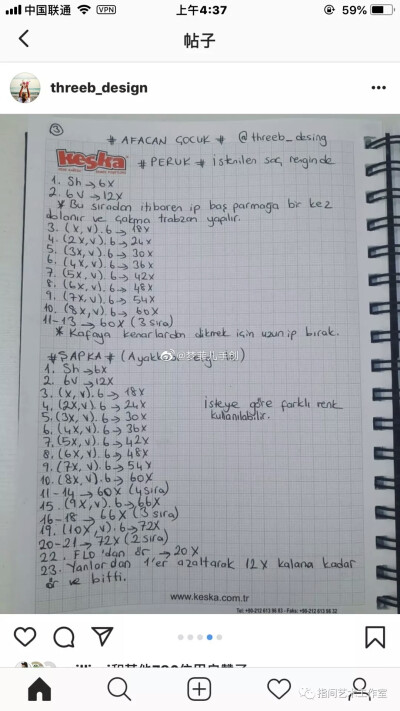 中国联通 VPN 上午4:37 59%
帖子
threeb_design
3
# AFACAN ÇOCUK # @threeb_desing
keska
# PERUK # istenilen saç renginde
1. Sh → 6x
2. 6V → 12X
* Bu sıradan itibaren ip baş parmağa bir kez
dolanır ve çakma trabzan yapılır.
3. (X, V).6 → 18X
4. (2X, V).6 → 24X
5. (3X, V).6 → 30X
6. (4X, V).6 → 36X
7. (5X, V).6 → 42X
8. (6X, V).6 → 48X
9. (7X, V).6 → 54X
10. (8X, V).6 → 60X
11-13 → 60X (3 sıra)
* Kafaya kenarlardan dikmek için uzun ip bırak.
#ŞAPKA#
@梦菲儿手创
1. Sh → 6X
2. 6V → 12X
3. (X, V).6 → 18X
4. (2X, V).6 → 24X
isteye göre farklı renk
5. (3X, V).6 → 30X
kullanılabilir.
6. (4X, V).6 → 36X
7. (5X, V).6 → 42X
8. (6X, V).6 → 48X
9. (7X, V).6 → 54X
10. (8X, V).6 → 60X
11-14 → 60X (4 sıra)
15. (9X, V).6 → 66X
16-18 → 66X (3 sıra)
19. (10X, V).6 → 72X
20-21 → 72X (2 sıra)
22. FLO'dan ör → 20X
23. Yanlardan 1'er azaltarak 12X kalana kadar
ör ve bitti.
www.keska.com.tr
指间艺术工作室